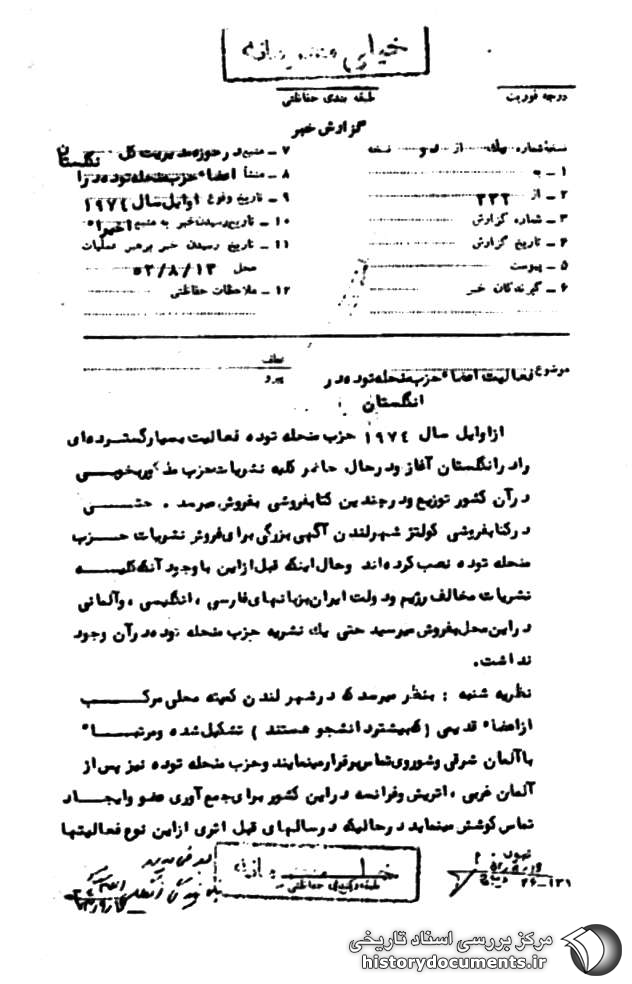 خیلی محرمانه
درجه فوریت
طبقه بندی حفاظتی
گزارش خبر
نسخه شماره یک از دو نسخه
۱ ــ به
۲ ــ از ۳۳۲
۳ ــ شماره گزارش
۴ ــ تاریخ گزارش
۵ ــ پیوست
۶ ــ گیرندگان خبر
۷ ــ منبع در حوزه مدیریت کل
۸ ــ منشأ اعضاء حزب منحله توده در انگلستان
۹ ــ تاریخ وقوع اوایل سال ۱۹۷۴
۱۰ ــ تاریخ رسیدن خبر به منبع اخیراً
۱۱ ــ تاریخ رسیدن خبر برهبر عملیات
محل ۵۳/۸/۱۳
۱۲ ــ ملاحظات حفاظتی
عطف
پیرو
موضوع فعالیت اعضاء حزب منحله توده در
انگلستان
ازاوایل سال ۱۹۷۴ حزب منحله توده فعالیت بسیار گسترده‌ای
رادر انگلستان آغاز ودرحال حاضر کلیه نشریات حزب مذکور بخوبی
درآن کشور توزیع ودرچندین کتابفروشی بفروش میرسد . حتی
درکتابفروشی کولتز شهرلندن آگهی بزرگی برای فروش نشریات حزب
منحله توده نصب کرده‌اند وحال اینکه قبل ازاین باوجود آنکه کلیه
نشریات مخالف رژیم ودولت ایران بزبانهای فارسی ، انگلیسی ، وآلمانی
دراین محل بفروش میرسید حتی یک نشریه حزب منحله توده درآن وجود
نداشت.
نظریه شنبه : بنظر میرسد که درشهر لندن کمیته محلی مرکب
ازاعضاء قدیمی (که بیشتر دانشجو هستند ) تشکیل شده ومرتباً
باآلمان شرقی وشوروی تماس برقرار مینمایند وحزب منحله توده نیز پس از
آلمان غربی ، اتریش وفرانسه دراین کشور برای جمع آوری عضو وایجاد
تماس کوشش مینماید درحالیکه درسالهای قبل اثری ازاین نوع فعالیتها
خیلی محرمانه
طبقه‌بندی حفاظتی
۲۶-۱۳۱
مرکز بررسی اسناد تاریخی
historydocuments.ir